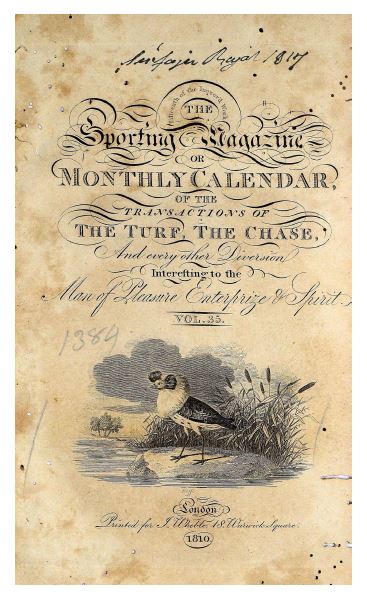 1817
THE
Sporting Magazine
OR
MONTHLY CALENDAR,
OF THE
TRANSACTIONS OF
THE TURF, THE CHASE,
And every other Diversion
Interesting to the
Man of Pleasure Enterprize & Spirit
VOL. 35.
1384
London
Printed for J. Wheble. 18. Warwick Square.
1810.